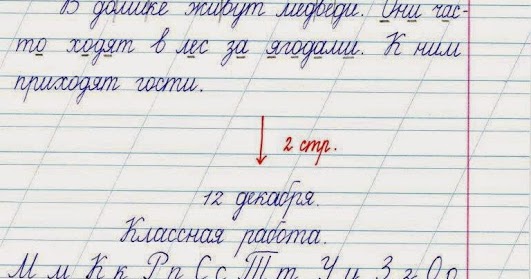 В домике живут медведи. Они час-
то ходят в лес за ягодами. К ним
приходят гости.
2 стр.
12 декабря.
Классная работа.
М м К к Р п С с Т т У у З г О о